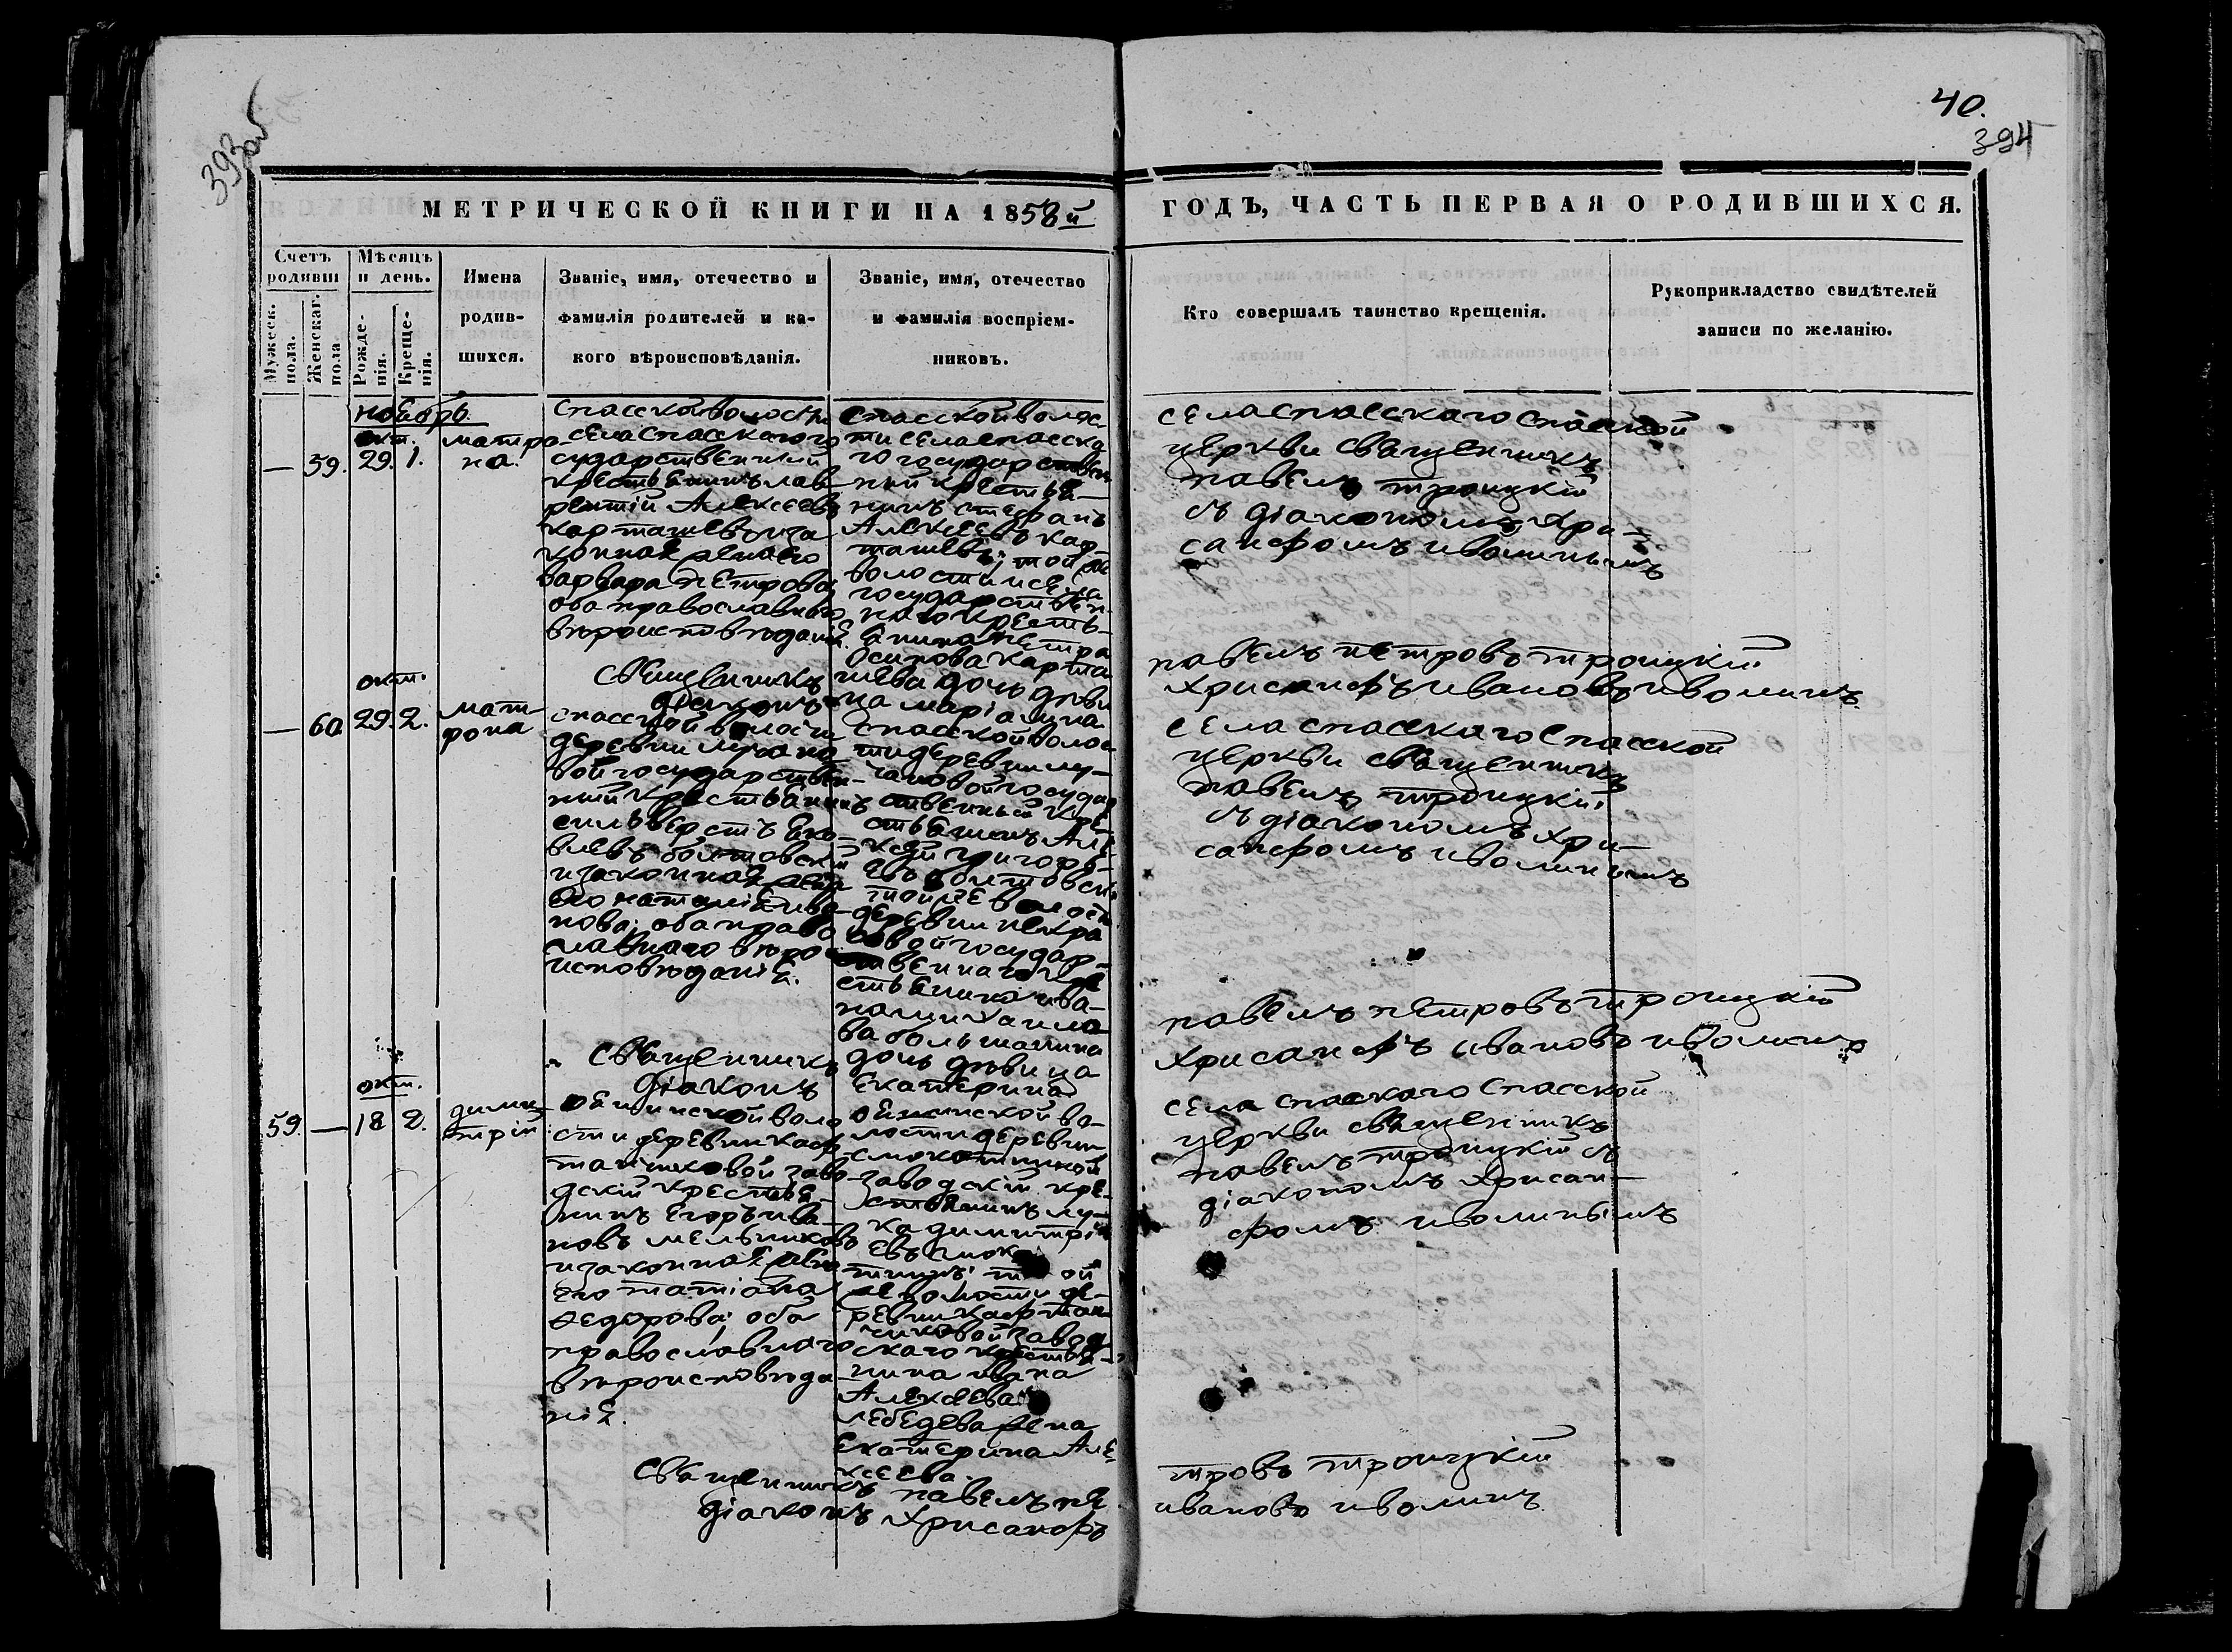 393об
40.
394
МЕТРИЧЕСКОЙ КНИГИ НА 1858й
ГОДЪ, ЧАСТЬ ПЕРВАЯ О РОДИВШИХСЯ.
Счетъ родивш
Мужеск. пола.
Женскаг. пола.
Мѣсяцъ и день.
Рожде-нія.
Креще-нія.
Имена
родив-
шихся.
Званіе, имя, отечество и
фамилія родителей и ка-
кого вѣроисповѣданія.
Званіе, имя, отечество
и фамилія воспріем-
никовъ.
Кто совершалъ таинство крещенія.
Рукоприкладство свидѣтелей
записи по желанію.
ноябрь
окт.
— 59. 29. 1.
матро
на.
Спасской волости
села Спасскаго го
сударственный
крестьянинъ лав
рентій Алексеевъ
карташевъ и за
конная жена его
варвара Петрова
оба православнаго
вѣроисповѣданія.
Спасской волос
ти села Спасска
го государствен
ный крестья
нинъ стефанъ
Алексеевъ кар
ташевъ; той же
волости и села
государствен
наго кресть
янина петра
Осипова карта
шева дочь дѣви
ца маріамна
села Спасскаго Спасской
церкви священникъ
павелъ троицкій
съ діакономъ Хри
санфомъ иволинымъ
Священникъ павелъ петровъ троицкій
діаконъ Хрисанфъ ивановъ иволинъ
окт.
— 60. 29. 2.
мат
рона
Спасской волости
деревни лучано
вой государствен
ный крестьянинъ
сильверстъ яко
влевъ болтовскій
и законная жена
его наталія ива
нова; оба право
славнаго вѣро
исповѣданія.
Спасской волос
ти деревни лу
чановой государ
ственный кре
стьянинъ Але
ксѣй григорь
евъ болтовскій
той же волости
деревни некра
совой государ
ственнаго кре
стьянина ива
на михаило
ва большанина
дочь дѣвица
Екатерина
села Спасскаго Спасской
церкви священникъ
павелъ троицкій
съ діакономъ Хри
санфомъ иволинымъ
Священникъ павелъ петровъ троицкій
діаконъ Хрисанфъ ивановъ иволинъ
окт.
59. — 18 2.
дими
трій
волости деревни кафтанчиковой заво
дскій крестья
нинъ Егоръ ива
новъ мельниковъ
и законная жена
его татіана
Ѳедорова; оба
православнаго
вѣроисповѣда
нія.
волости деревни
заводскій кре
стьянинъ лу
ка димитрі
евъ
той
же волости де
ревни кафтан
чиковой завод
скаго крестья
нина ивана
Алексеева
лебедева жена
Екатерина Але
ксеева.
села Спаскаго Спасской
церкви священникъ
павелъ троицкій съ
діакономъ Хрисан
фомъ иволинымъ
Священникъ павелъ петровъ троицкій
діаконъ Хрисанфъ ивановъ иволинъ